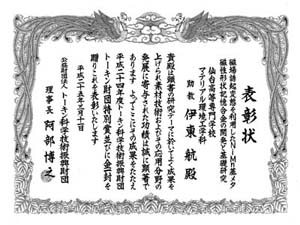 表彰状
磁場誘起変態を利用したNiMn基メタ
磁性形状記憶合金の開発と基礎研究
仙台高等専門学校
マテリアル環境工学科
助教 伊東 航 殿
貴殿は頭書の研究テーマに於いてよく成果を
上げられ素材技術およびその応用分野の
発展に寄与された功績は誠に顕著で
あります よってここにその成果をたたえ
平成二十四年度トーキン科学技術振興財団
トーキン財団特別賞並びに金一封を
贈りこれを表彰いたします
平成二十五年三月十日
公益財団法人 トーキン科学技術振興財団
理事長 阿部 博之